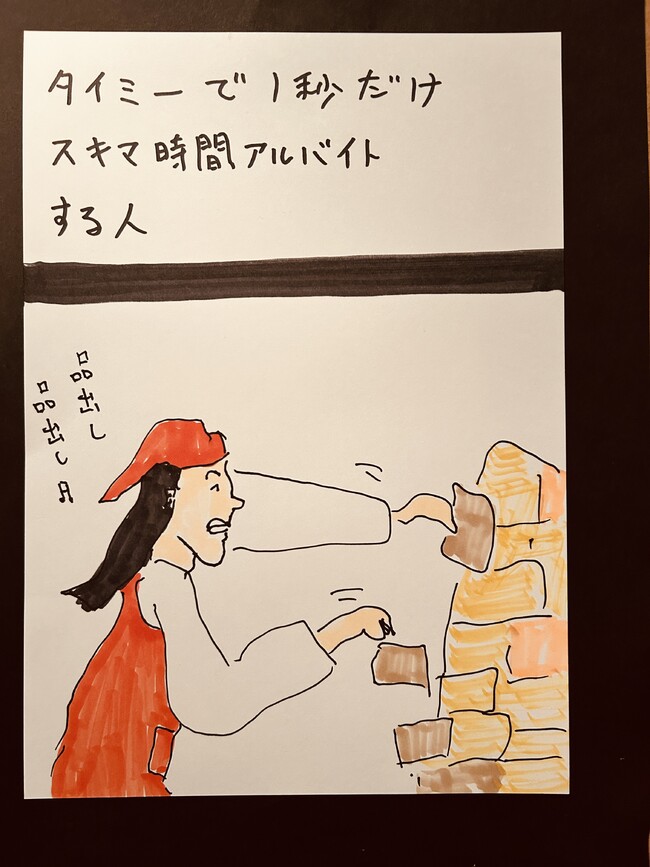 タイミーで1秒だけ
スキマ時間アルバイト
する人
品出し
品出し♬